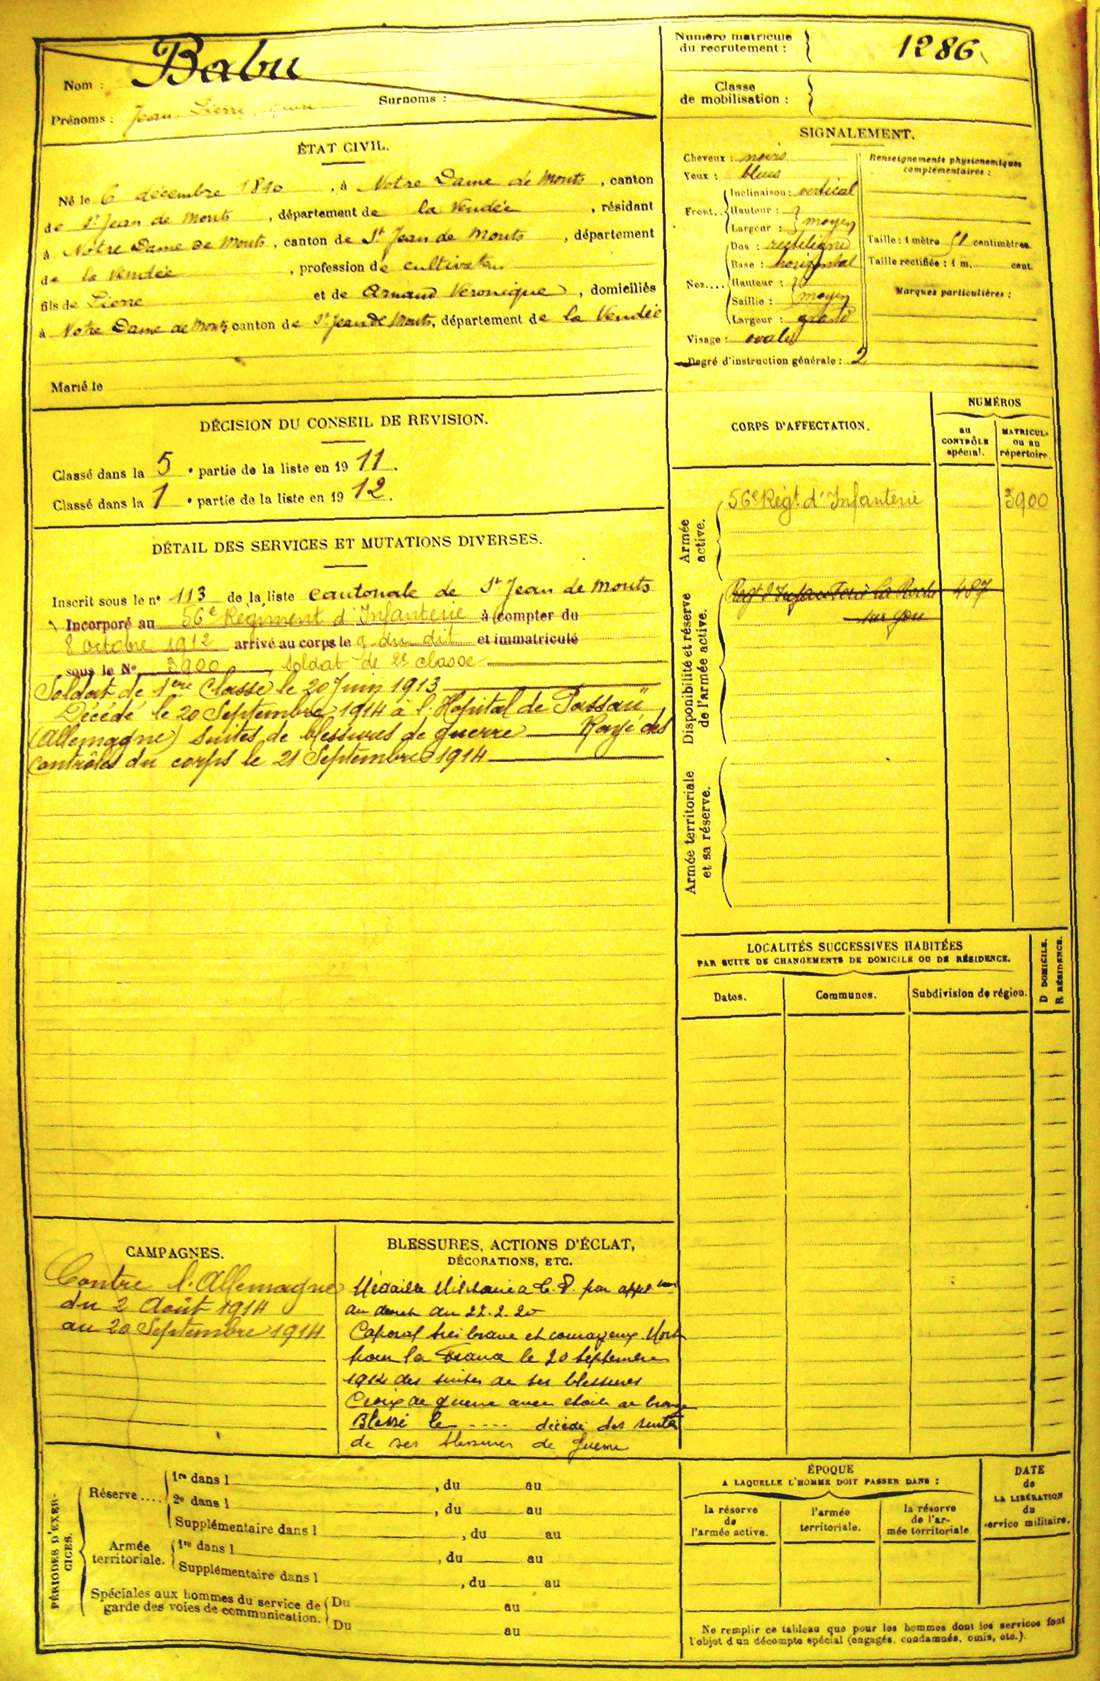 Nom : Babu
Prénoms : Jean Pierre
Surnoms :
Numéro matricule
du recrutement : 1286
Classe
de mobilisation :
ÉTAT CIVIL.
Né le 6 décembre 1890, à Notre Dame de Monts, canton
de St Jean de Monts, département de la Vendée, résidant
à Notre Dame de Monts, canton de St Jean de Monts, département
de la Vendée, profession de cultivateur
fils de Pierre et de Arnaud Véronique, domiciliés
à Notre Dame de Monts canton de St Jean de Monts, département de la Vendée
Marié le
SIGNALEMENT.
Cheveux : noirs
Yeux : bleus
Front. Inclinaison : vertical
Hauteur :
Largeur : moyen
Nez. Dos : rectiligne
Base : horizontal
Hauteur :
Saillie : moyen
Largeur : grand
Visage : ovale
Degré d'instruction générale : 2
Renseignements physionomiques
complémentaires :
Taille : 1 mètre 51 centimètres.
Taille rectifiée : 1 m. cent.
Marques particulières :
DÉCISION DU CONSEIL DE REVISION.
Classé dans la 5e partie de la liste en 1911.
Classé dans la 1e partie de la liste en 1912.
DÉTAIL DES SERVICES ET MUTATIONS DIVERSES.
Inscrit sous le no 113 de la liste cantonale de St Jean de Monts
Incorporé au 56e Régiment d'Infanterie à compter du
8 octobre 1912 arrivé au corps le 9 du dit et immatriculé
sous le No 3900 soldat de 2e classe
Soldat de 1ère Classe le 20 Juin 1913
Décédé le 20 Septembre 1914 à l'Hôpital de Passau
(Allemagne) suites de blessures de guerre Rayé des
contrôles du corps le 21 Septembre 1914
CORPS D'AFFECTATION.
NUMÉROS
au
CONTRÔLE
spécial.
MATRICULE
ou au
répertoire.
Armée
active.
56e Régt d'Infanterie 3900
Disponibilité et réserve
de l'armée active.
Regt d'Infanterie La Roche 487
sur yon
Armée territoriale
et sa réserve.
LOCALITÉS SUCCESSIVES HABITÉES
PAR SUITE DE CHANGEMENTS DE DOMICILE OU DE RÉSIDENCE.
Dates. Communes. Subdivision de région.
D DOMICILE.
R RÉSIDENCE.
CAMPAGNES.
Contre l'Allemagne
du 2 Août 1914
au 20 Septembre 1914
BLESSURES, ACTIONS D'ÉCLAT,
DÉCORATIONS, ETC.
Médaille Militaire a C. P. par appon
au décret du 22.2.20
Caporal très brave et courageux Mort
pour la France le 20 Septembre
1914 des suites de ses blessures
Croix de guerre avec étoile de bronze
Blessé le .... décédé des suites
de ses blessures de guerre
PÉRIODES D'EXER-
CICES.
Réserve....
1re dans l , du au
2e dans l , du au
Supplémentaire dans l , du au
Armée
territoriale.
1re dans l , du au
Supplémentaire dans l , du au
Spéciales aux hommes du service de
garde des voies de communication.
Du au
Du au
ÉPOQUE
A LAQUELLE L'HOMME DOIT PASSER DANS :
la réserve
de
l'armée active.
l'armée
territoriale.
la réserve
de l'ar-
mée territoriale
DATE
de
LA LIBÉRATION
du
service militaire.
Ne remplir ce tableau que pour les hommes dont les services font
l'objet d'un décompte spécial (engagés, condamnés, omis, etc.).